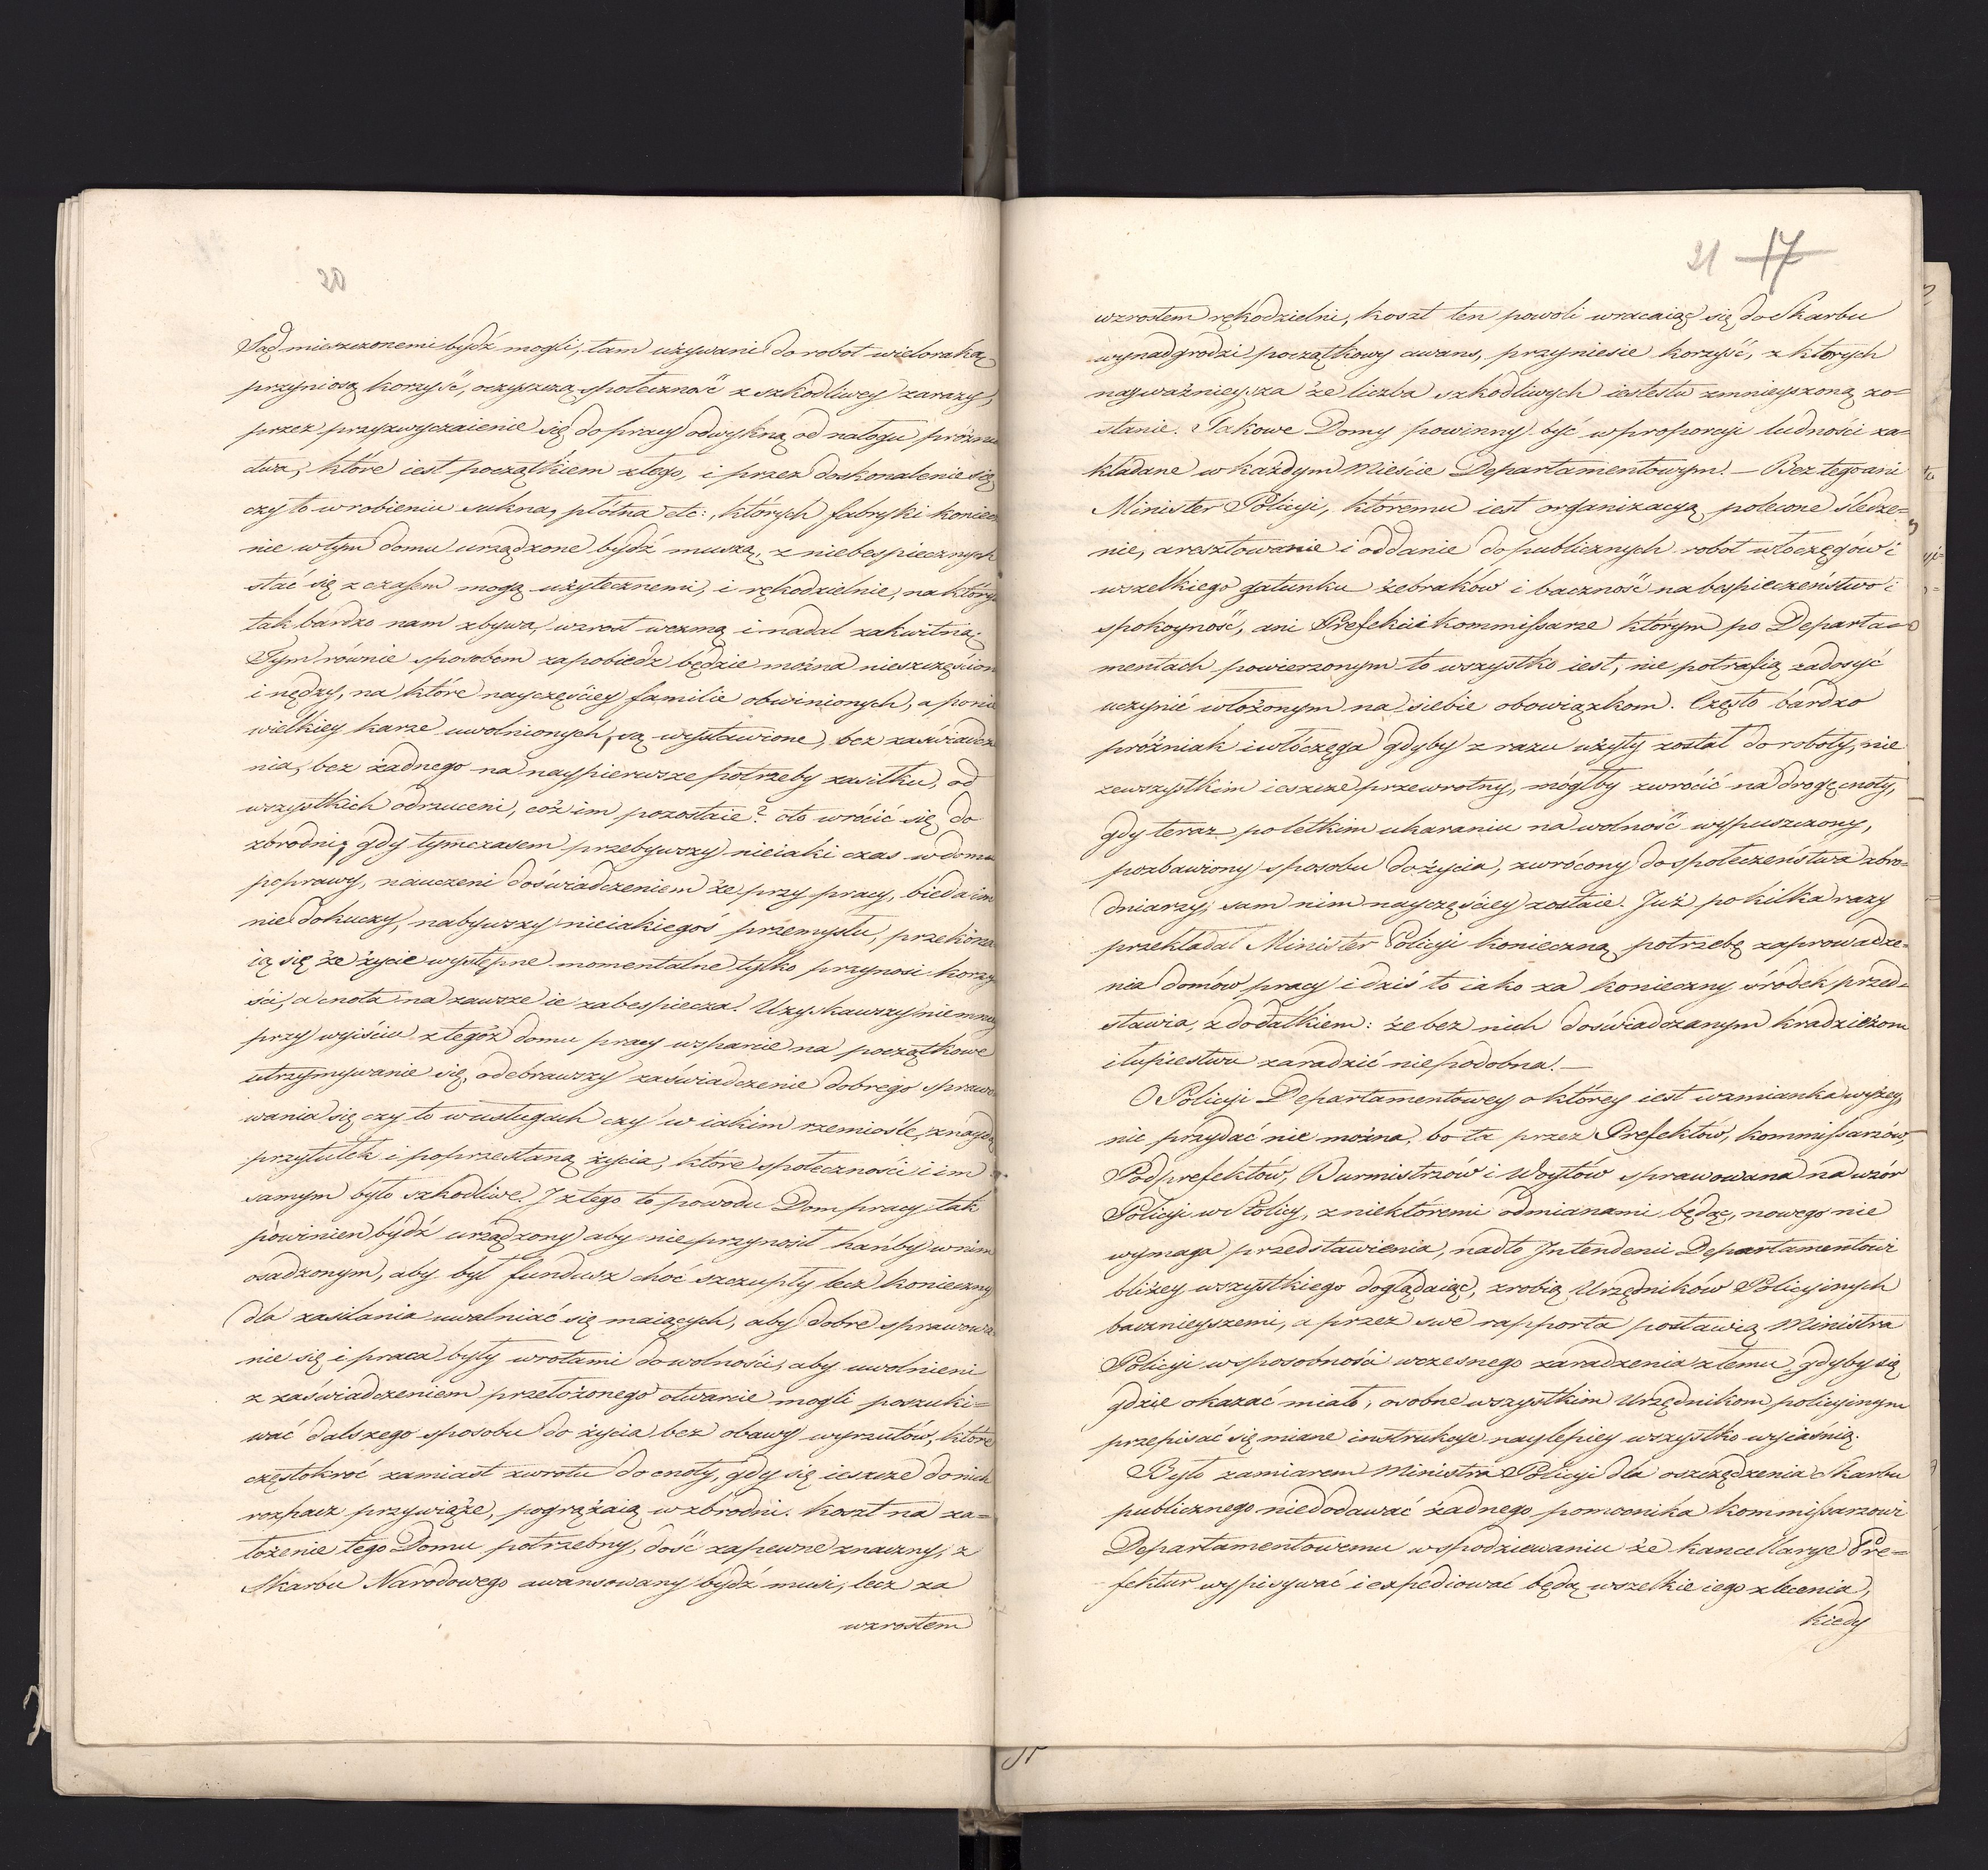 20
Sąd mieszczonemi bydź mogli, tam używani do robot wieloraką
przyniosą korzyść, oczyszczą społeczność z szkodliwey zarazy,
przez przyzwyczaienie się do pracy odwykną od nałogu próżnia
ctwa, które iest początkiem złego, i przez doskonalenie się
czy to w robieniu sukna, płótna etc:, których fabryki koniecz
nie w tym domu urządzone bydź muszą, z niebespiecznych
stać się z czasem mogą użytecznemi, i rękodzielnie, na który
tak bardzo nam zbywa, wzrost wezmą i nadal zakwitną.
Tym równie sposobem zapobiedz będzie można nieszczęściom
i nędzy, na które nayczęściey familie obwinionych, a ponie
wielkiey karze uwolnionych, są wystawione, bez zaświadcze
nia, bez żadnego na naypierwsze potrzeby zasiłku, od
wszystkich odrzuceni, coż im pozostaie? oto wrócić się do
zbrodni, gdy tymczasem przebywszy nieiaki czas w domu
poprawy, nauczeni doświadczeniem że przy pracy, bieda im
nie dokuczy, nabywszy nieiakiegoś przemysłu, przekona
ią się że życie występne momentalne tylko przynosi korzy
ści, a cnota na zawsze ie zabespiecza. Uzyskawszy niemniey
przy wyiściu z tegóż domu pracy wsparcie na początkowe
utrzymywanie się, odebrawszy zaświadczenie dobrego sprawo
wania się czy to w usługach czy w iakim rzemiośle, znaydą
przytułek i poprzestaną życia, które społeczności i im
samym było szkodliwe. Iz tego to powodu Dom pracy tak
powinien bydź urządzony aby nie przynosił hańby w nim
osadzonym, aby był fundusz choć szczupły lecz konieczny
dla zasilania uwalniać się maiących, aby dobre sprawowa
nie się i praca były wrotami do wolności, aby uwolnieni
z zaświadczeniem przełożonego otwarcie mogli poszuki=
wać dalszego sposobu do życia bez obawy wyrzutów, które
częstokroć zamiast zwrotu do cnoty, gdy się ieszcze do nich
rozpacz przywiąże, pogrążaią w zbrodni. Koszt na za=
łożenie tego Domu potrzebny, dość zapewne znaczny, z
Skarbu Narodowego awansowany bydź musi, lecz za
wzrostem
21 17
wzrostem rękodzielni, koszt ten powoli wracaiąc się do Skarbu
wynadgrodzi początkowy awans, przyniesie korzyść, z których
nayważnieysza że liczba szkodliwych iestestw zmnieyszoną zo=
stanie. Takowe Domy powinny być w proporcyi ludności za=
kładane w każdym Mieście Departamentowym. — Bez tego ani
Minister Policyi, któremu iest organizacyą polecone śledze=
nie, aresztowanie i oddanie do publicznych robot włoczęgów i
wszelkiego gatunku żebraków i baczność na bespieczeństwo i
spokoyność, ani Prefekci i Kommissarze którym po Departa=
mentach powierzonym to wszystko iest, nie potrafią zadosyć
uczynić włożonym na siebie obowiązkom. Często bardzo
próżniak i włóczęga gdyby z razu użyty został do roboty, nie
zewszystkim ieszcze przewrotny, mógłby zwrócić na drogę cnoty,
gdy teraz po letkim ukaraniu na wolność wypuszczony,
pozbawiony sposobu do życia, zwrócony do społeczeństwa zbro=
dniarzy, sam nim nayczęściey zostaie. Już po kilka razy
przekładał Minister Policyi konieczną potrzebę zaprowadze=
nia domów pracy i dziś to iako za konieczny śrόdek przed=
stawia, z dodatkiem: że bez nich doświadczanym kradzieżom
i łupiestwu zaradzić niepodobna. —
O Policyi Departamentowey o którey iest wzmianka wyżey,
nic przydać nie można, bo ta przez Prefektów, Kommissarzów,
Podprefektów, Burmistrzów i Woytów sprawowana na wzór
Policyi w Stolicy, z niektóremi odmianami będąc, nowego nie
wymaga przedstawienia, nadto Intendenci Departamentowi
bliżey wszystkiego doglądaiąc, zrobią Urzędników Policyinych
bacznieyszemi, a przez swe rapporta postawią Ministra
Policyi w sposobności wczesnego zaradzenia złemu, gdyby się
gdzie okazać miało, osobne wszystkim Urzędnikom policyinym
przepisać się miane instrukcye naylepiey wszystko wyiaśnią.
Było zamiarem Ministra Policyi dla oszczędzenia Skarbu
publicznego niedodawać żadnego pomocnika Kommissarzowi
Departamentowemu w spodziewaniu że kancellarye Pre=
fektur wypisywać i expediować będą wszelkie iego zlecenia,
kiedy